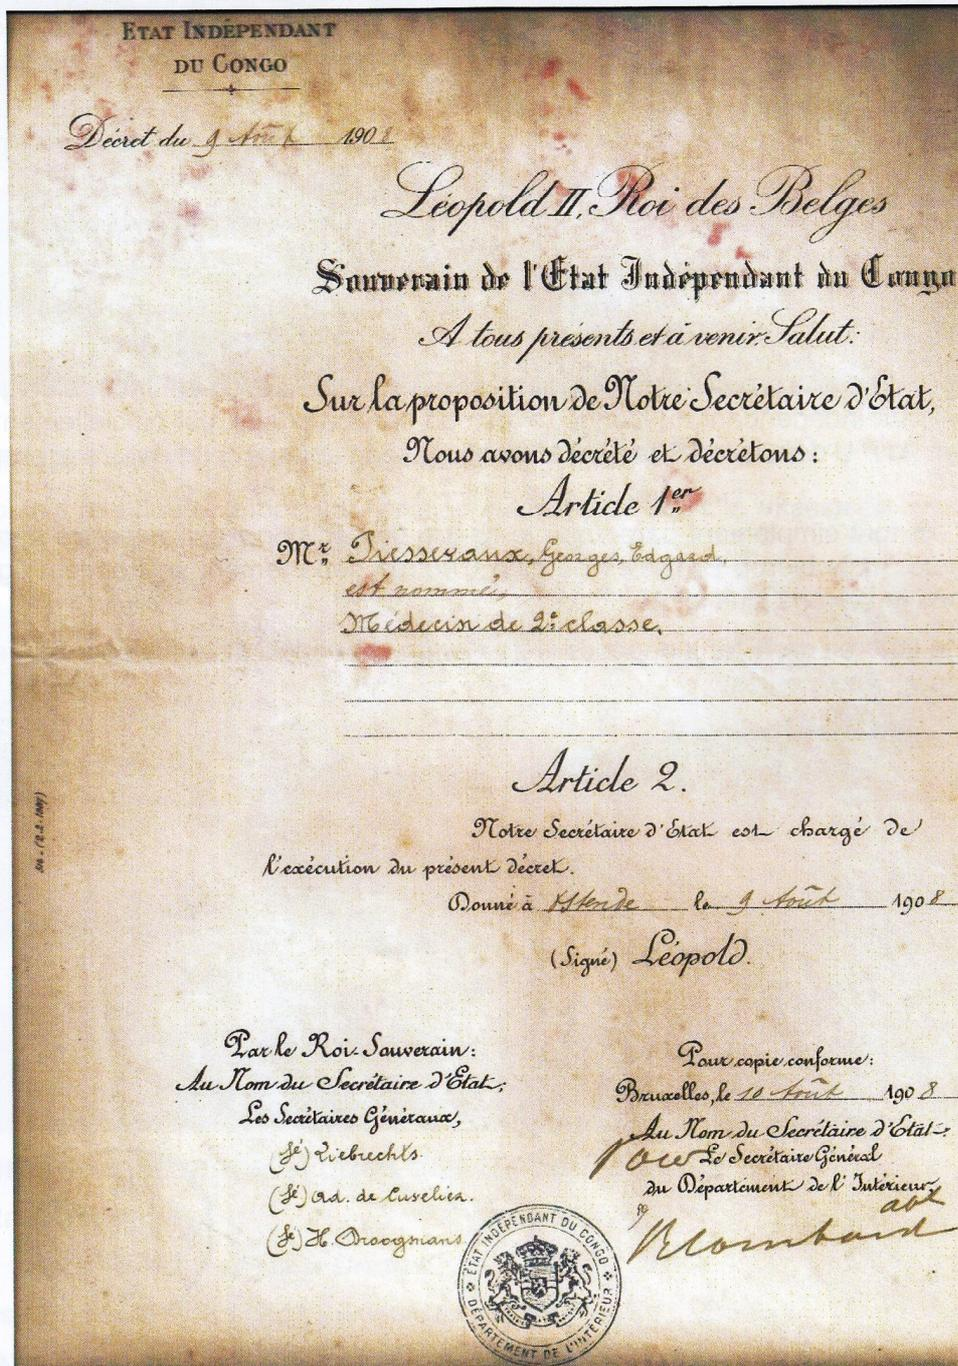 ETAT INDÉPENDANT
DU CONGO
Décret du 9 Août 1908
Léopold II, Roi des Belges
Souverain de l'Etat Indépendant du Congo
A tous présents et à venir, Salut:
Sur la proposition de Notre Secrétaire d'Etat,
Nous avons décrété et décrétons:
Article 1er
Mr Piesseraux, Georges, Edgard,
est nommé,
Médecin de 2e classe.
Article 2.
Notre Secrétaire d'Etat est chargé de
l'exécution du présent décret.
Donné à Ostende le 9 Août 1908
(Signé) Léopold.
Par le Roi-Souverain:
Au Nom du Secrétaire d'Etat,
Les Secrétaires Généraux,
(sé) Liebrechts
(sé) Ad. de Cuvelier.
(sé) H. Droogmans
Pour copie conforme:
Bruxelles, le 10 Août 1908
Au Nom du Secrétaire d'Etat:
Pour Le Secrétaire Général
du Département de l'Intérieur,
ÉTAT INDÉPENDANT DU CONGO
DÉPARTEMENT DE L'INTÉRIEUR